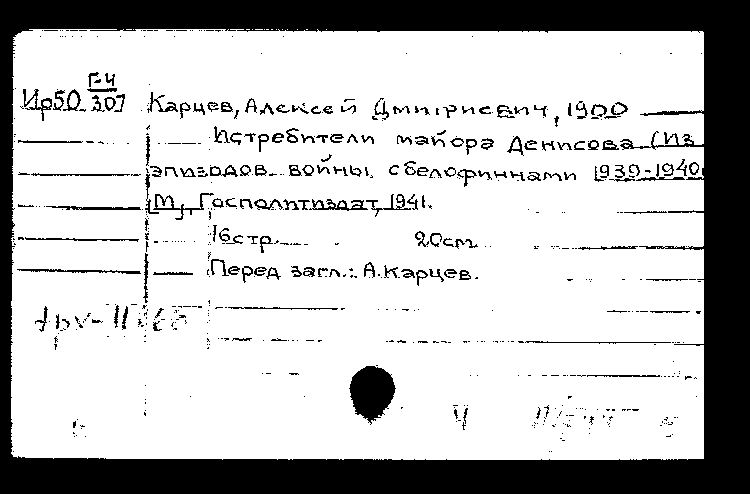 Г-4
Ир50 307 Карцев, Алексей Дмитриевич, 1900
Истребители майора Денисова (Из
эпизодов войны с белофиннами 1939-1940
М., Госполитиздат, 1941.
16стр. 20см.
Перед загл.: А. Карцев.